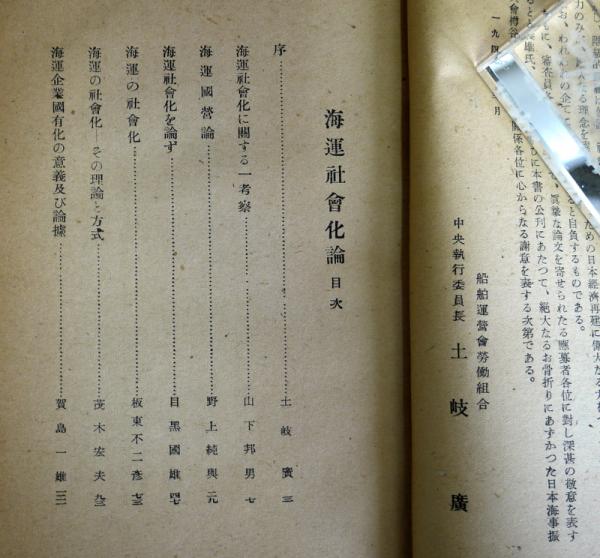 ための日本經濟再建に偉大なる力
ると自負するものである。
眞摯な論文を寄せられたる應募者各位に對し深甚の敬意を表す
本書の公刊にあたつて、絶大なるお骨折りにあずかつた日本海事振
關係各位に心からなる謝意を表する次第である。
一九四 月
船舶運營會勞働組合
中央執行委員長 土岐廣
海運社會化論 目次
序 土岐廣 三
海運社會化に關する一考察 山下邦男 七
海運國營論 野上純與 元
海運社會化を論ず 目黑國雄 四七
海運の社會化 板東不二彥 七三
海運の社會化―その理論と方式 茂木宏夫 九三
海運企業國有化の意義及び論據 賀島一雄 三